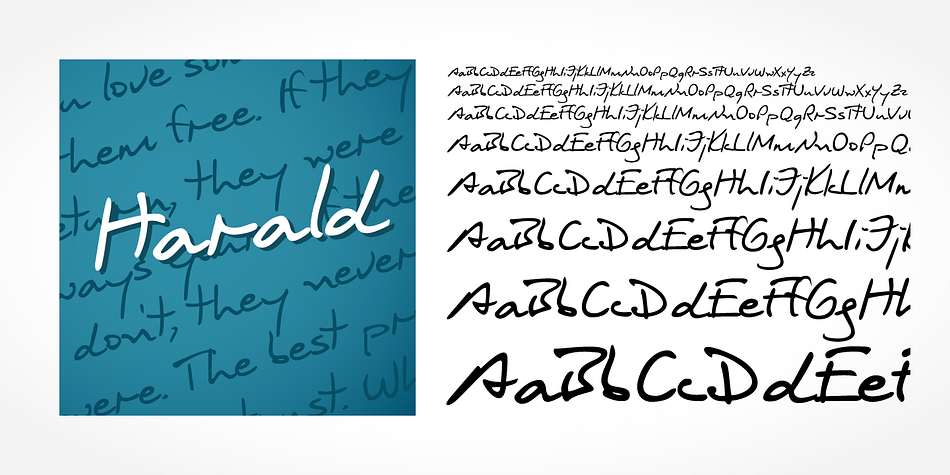 u love
them free. If they
return, they were
Harald
ways
the
don't, they never
were. The best pr
. Wh
AaBbCcDdEeFfGgHhIiJjKkLlMmNnOoPpQqRrSsTtUuVvWwXxYyZz
AaBbCcDdEeFfGgHhIiJjKkLlMmNnOoPpQqRrSsTtUuVvWwXxYyZz
AaBbCcDdEeFfGgHhIiJjKkLlMmNnOoPpQqRrSsTtUuVv
AaBbCcDdEeFfGgHhIiJjKkLlMmNnOoPpQ
AaBbCcDdEeFfGgHhIiJjKkLlMm
AaBbCcDdEeFfGgHhIiJj
AaBbCcDdEeFfGgHh
AaBbCcDdEef